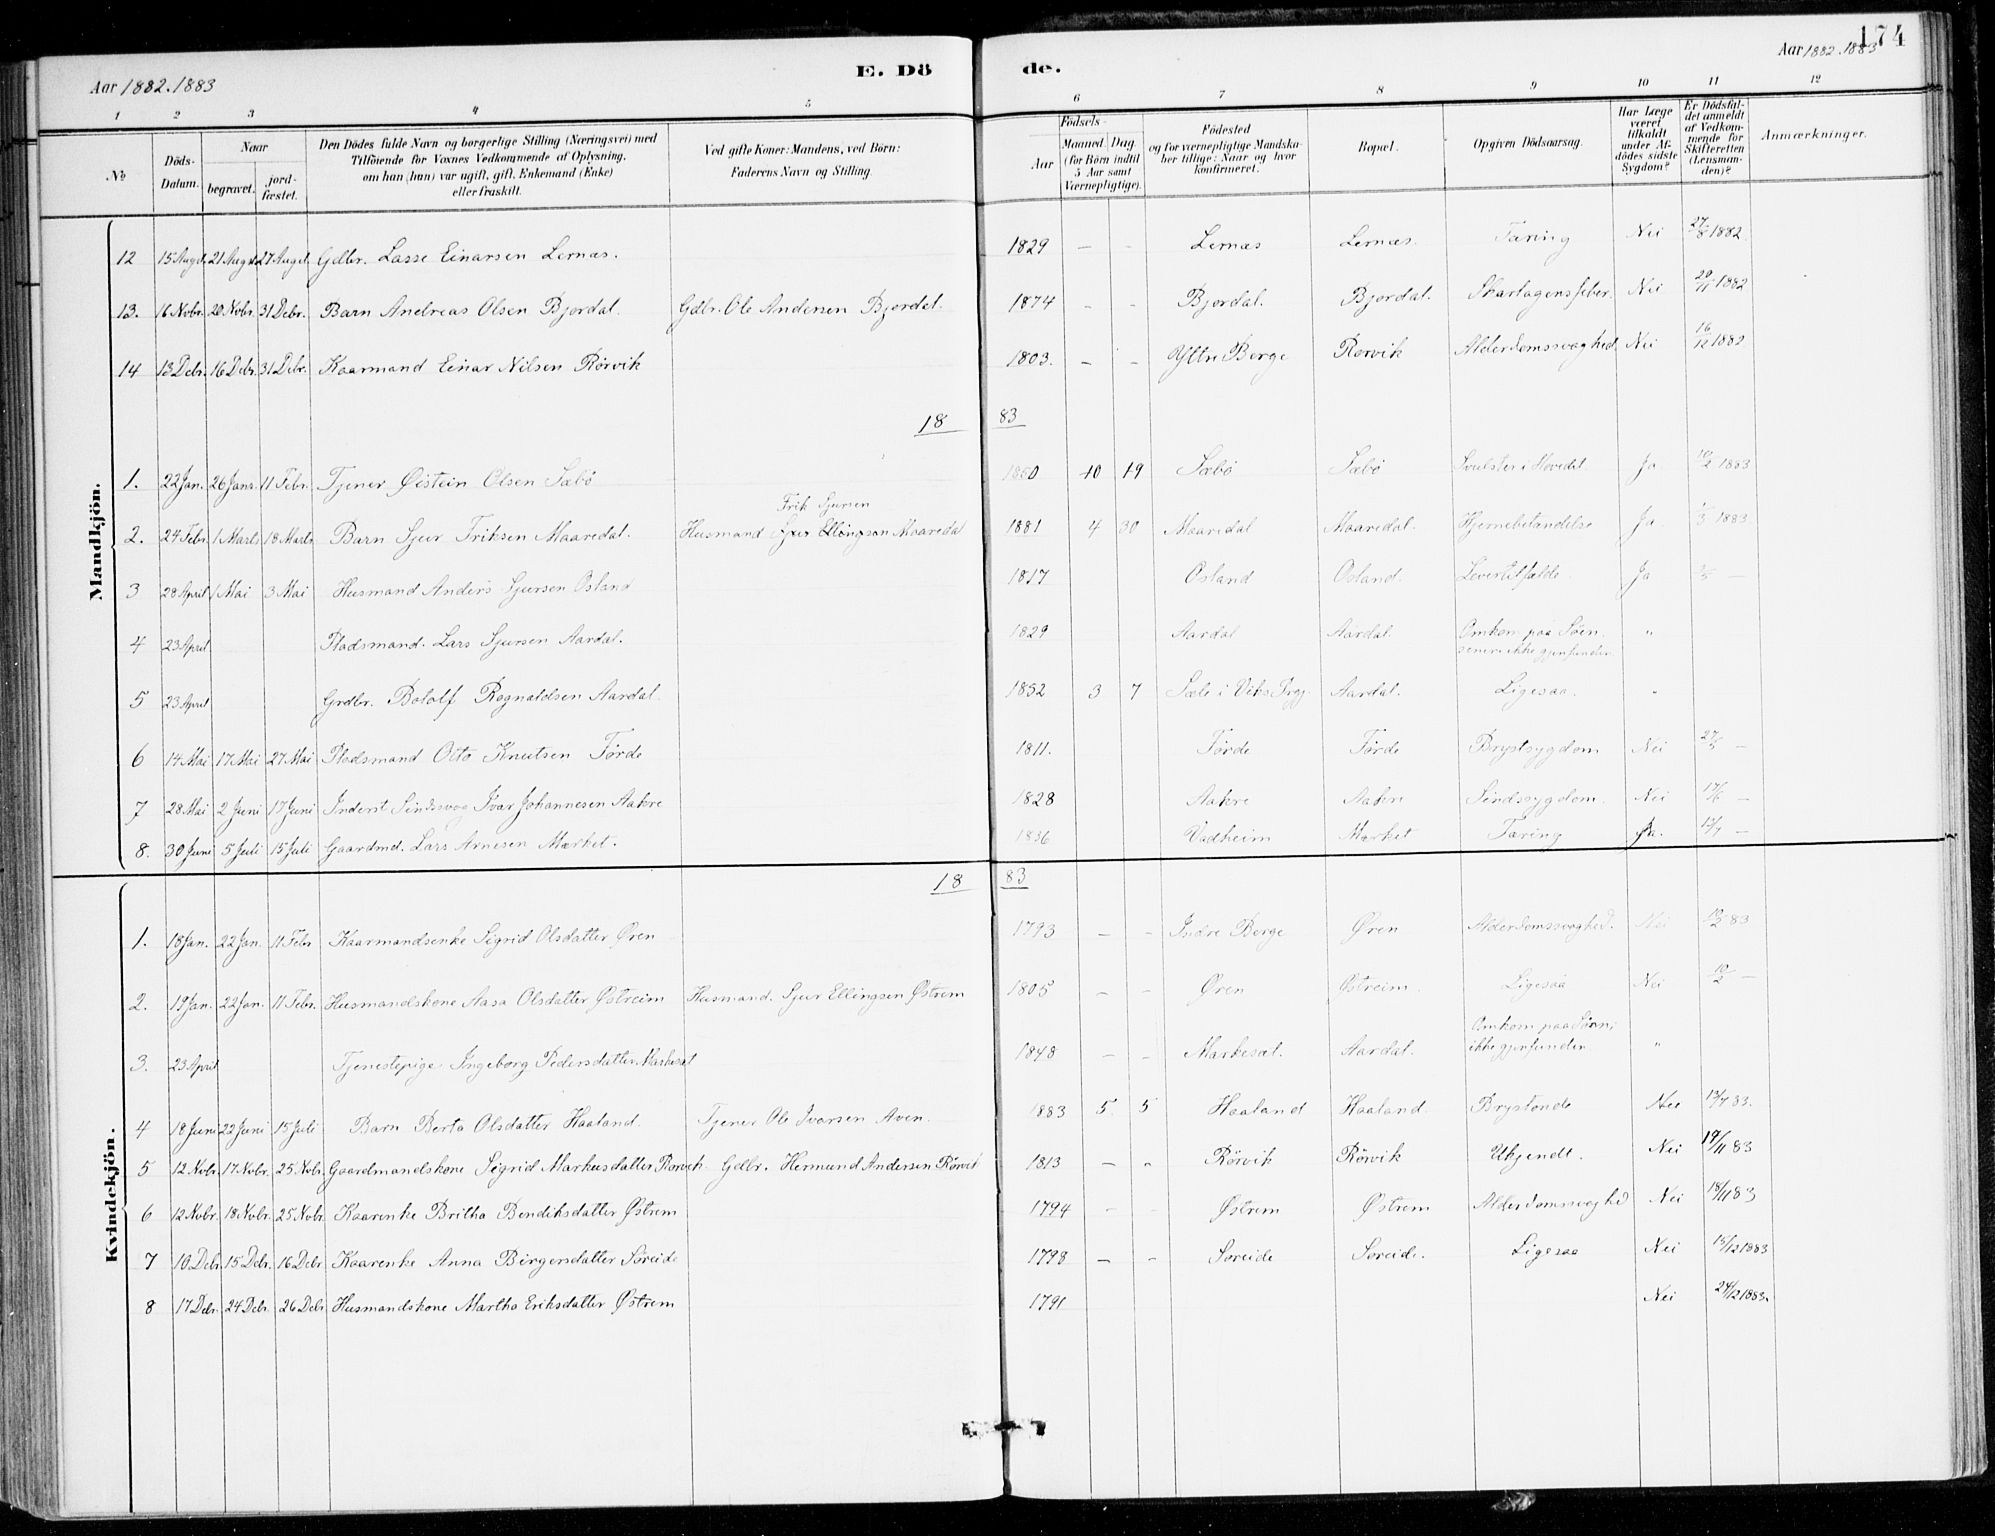 174
Aar 1882.1883
E. Dö
de.
Aar 1882.1883
1 2 3 4 5 6 7 8 9 10 11 12
№
Döds-Datum.
Naar
begravet.
jord-fæstet.
Den Dödes fulde Navn og borgerlige Stilling (Næringsvei) med
Tilföiende for Voxnes Vedkommende af Oplysning,
om han (hun) var ugift, gift, Enkemand (Enke)
eller fraskilt.
Ved gifte Koner: Mandens, ved Börn:
Faderens Navn og Stilling.
Födsels-
Aar
Maaned Dag
(for Börn indtil
5 Aar samt
Værnepligtige).
Födested
og for værnepligtige Mandska-
ber tillige: Naar og hvor
konfirmeret.
Bopæl.
Opgiven Dödsaarsag.
Har Læge
været
tilkaldt
under Af-
dödes sidste
Sygdom?
Er Dödsfal-
det anmeldt
af Vedkom-
mende for
Skifteretten
(Lensman-
den)?
Anmærkninger.
Mandkjön.
12 15 Augst. 21 Augst. 27 Augst. Gdbr. Lasse Einarsen Lernæs. 1829 — — Lernæs Lernæs. Tæring Nei 27/8 1882.
13. 16 Nobr. 20 Nobr. 31 Debr. Barn Andreas Olsen Bjordal. Gdbr. Ole Andersen Bjordal. 1874 — — Bjordal. Bjordal. Skarlagensfeber. Nei 29/11 1882
14 13 Debr. 16 Debr. 31 Debr. Kaarmand Einar Nilsen Rörvik 1803. — — Yttre Berge Rørvik Alderdomssvaghed Nei 16/12 1882
18 83
1. 22 Jan. 26 Janr. 11 Febr. Tjener Øistein Olsen Sæbö 1860 10 19 Sæbö Sæbö Svulster i Hovedet. Ja 10/2 1883
Erik Sjursen
2. 24 Febr. 1 Marts 18 Marts Barn Sjur Eriksen Maaredal. Husmand Sjur Ellingsen Maaredal 1881 4 30 Maaredal Maaredal. Hjernebetændelse Ja 1/3 1883
3 28 April 1 Mai 3 Mai Husmand Anders Sjursen Osland 1817 Osland Osland. Levertilfælde. Ja —
4 23 April Pladsmand. Lars Sjursen Aardal. 1829 Aardal Aardal. Omkom paa Søen. "
senere ikke gjenfunden
5 23 April Grdbr. Botolf Ragnaldsen Aardal. 1852 3 7 Sæle i Viks Prgj. Aardal. Ligesaa. "
6 14 Mai 17 Mai 27 Mai Pladsmand Otto Knutsen Førde 1811. Førde Førde Brystsygdom Nei 27/5 —
7 28 Mai 2 Juni 17 Juni Inderst Sindssvag Ivar Johannesen Aakre 1828 Aakre Aakre Sindssygdom. Nei 17/6 —
8. 30 Juni 5 Juli 15 Juli Gaardmd. Lars Arnesen Mærket. 1836 Vadheim Mærket Tæring Ja. 13/7 —
Kvindekjön.
18 83
1. 18 Jan. 22 Jan. 11 Febr Kaarmandsenke Sigrid Olsdatter Øren 1793 — — Indre Berge Øren Alderdomssvaghed. Nei 10/2 83
2. 19 Jan. 22 Jan. 11 Febr. Husmandskone Aasa Olsdatter Østreim Husmand. Sjur Ellingsen Østrem 1805 — — Øren Østreim. Ligesaa Nei 10/2 —
3. 23 April Tjenestepige Ingeborg Pedersdatter Markesæt 1848 — — Markesæt. Aardal. Omkom paa Søen;
ikke gjenfunden "
4 18 Juni 22 Juni 15 Juli Barn Berta Olsdatter Haaland. Tjener Ole Ivarsen Aven. 1883 5. 5 Haaland Haaland. Brystonde Nei 13/7 83.
5 12 Nobr. 17 Nobr. 25 Nobr. Gaardmandskone Sigrid Markusdatter Rørvik Gdbr. Hermund Andersen Rörvik 1813 — " Rörvik Rörvik Ukjendt. Nei 19/11 83
6 12 Nobr. 18 Nobr. 25 Nobr. Kaarenke Britha Bendiksdatter Østrem 1794 - - Østrem Østrem Alderdomssvaghed Nei 18/11 83
7 10 Debr. 15 Debr. 16 Debr. Kaarenke Anna Birgersdatter Søreide 1798 — - Søreide Søreide. Ligesaa Nei 15/12 1883
8 17 Debr. 24 Debr. 26 Debr Husmandskone Martha Eriksdatter Østrem 1791 Nei 24/12 1883.